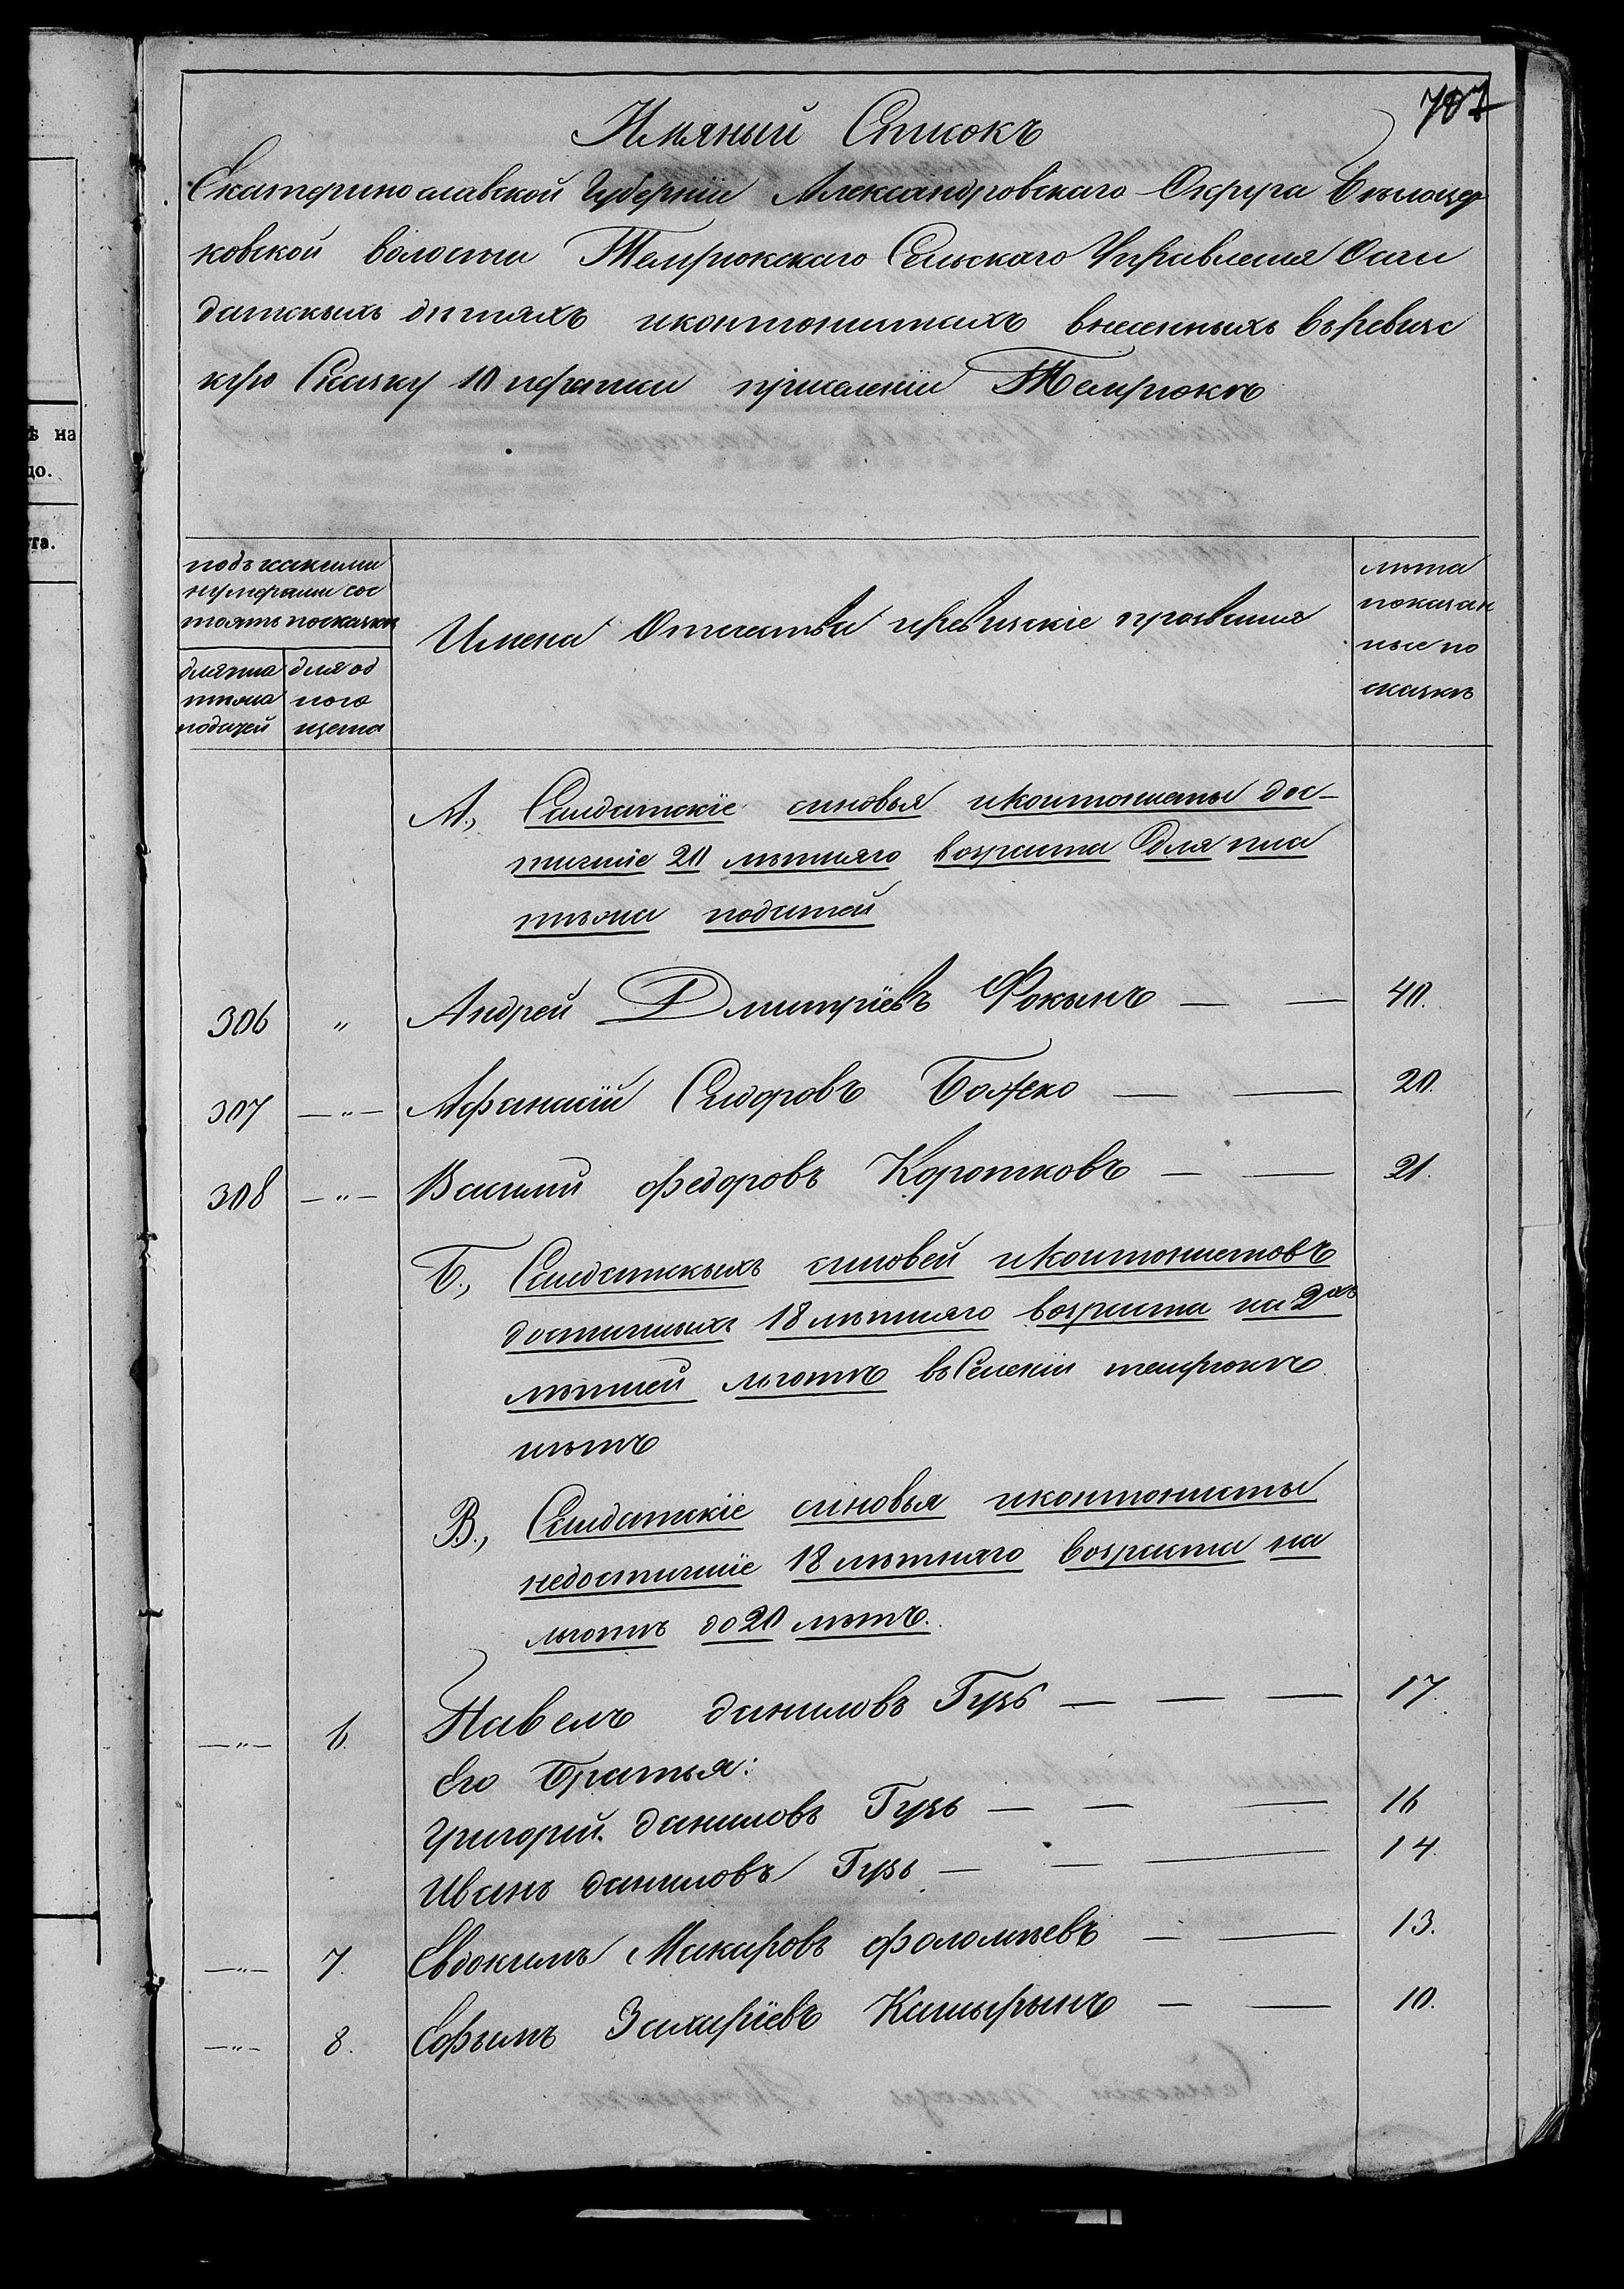 707
Имяный Списокъ
Екатеринославской Губерніи Александровскаго Округа Бѣлоцер
ковской волости Темрюкскаго Сельскаго Управленія Осол
датскыхъ дѣтяхъ икантонистахъ внесенныхъ въ ревизс
кую Сказку 10 переписи приселеніи Темрюкъ
ѣ на
цо.
та.
подъ какими
нумерами сос
тоятъ посказки
для пла
тежа
податей
для од
ного
щета
Имена Отечества иревизскіе прозванія
лѣта
показан
ные по
сказкѣ
А., Салдатскіе синовья икантонисты дос-
тигшіе 20 лѣтняго возраста для пла
тѣжа податей
306 " Андрей Дмитріевъ Фокынъ — — 40.
307 —"— Афанасій Сидоровъ Божко — — 20.
308 —"— Василий федоровъ Коротковъ — — 21.
Б., Салдатскыхъ синовей икантонистовъ
достигшыхъ 18 лѣтняго возраста на 2хъ
лѣтней льготѣ въ Селеніи темрюкѣ
нѣтъ
В., Салдатскіе синовья икантонисты
недостигшіе 18 лѣтняго возраста на
льготѣ до 20 лѣтъ.
—"— 6. Павелъ даниловъ Гузь — — — 17.
Его Братья:
Григорий даниловъ Гузь — — — 16
Иванъ даниловъ Гузь — — — 14.
—"— 7. Евдокимъ Макаровъ фоломѣевъ — — 13.
—"— 8. Ефымъ Захаріевъ Кашырынъ — — 10.